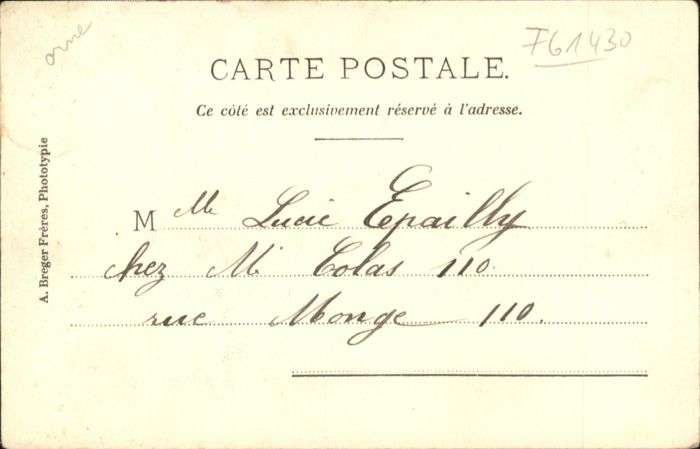 orne
F61430
CARTE POSTALE.
Ce côté est exclusivement réservé à l'adresse.
A. Breger Frères, Phototypie
Mlle Lucie Epailly
chez M. Colas 110.
rue Monge 110.